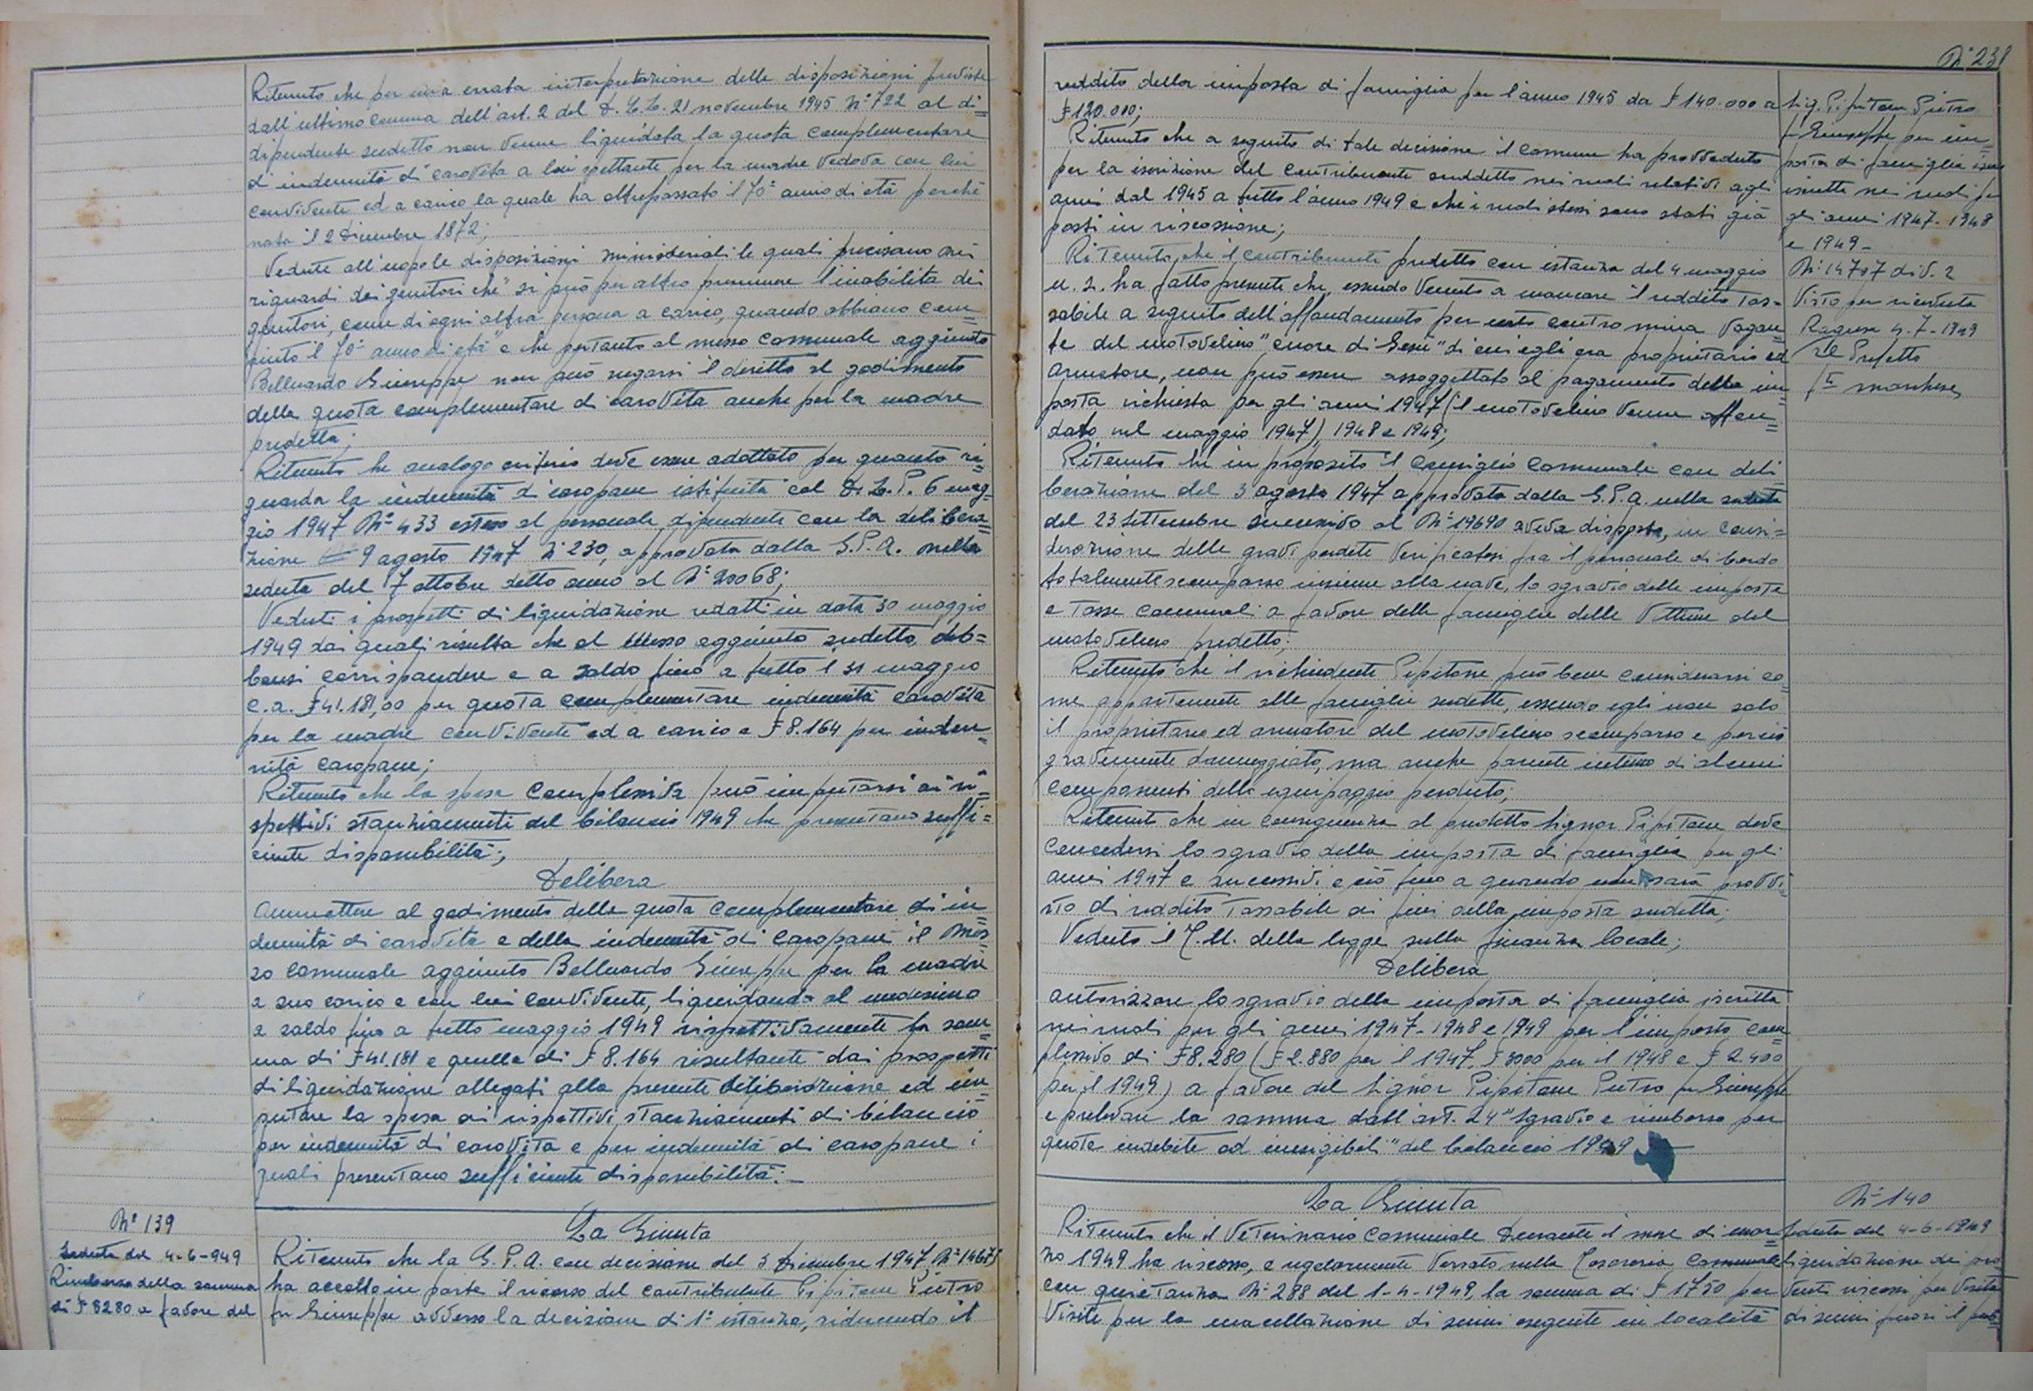 Ritenuto che per una errata interpretazione delle disposizioni previste
dall'ultimo comma dell'art. 2 del D. L. L. 21 novembre 1945 N° 722 al di=
dipendente sudetto non venne liquidata la quota complementare
di indennità di carovita a lui spettante per la madre vedova con lui
convivente ed a carico la quale ha oltrepassato il 70° anno di età perchè
nata il 2 Dicembre 1872;
Vedute all'uopo le disposizioni ministeriali le quali precisano nei
riguardi dei genitori che "si può per altro presumere l'inabilità dei
genitori, come di ogni altra persona a carico, quando abbiano com=
piuto il 70° anno di età" e che pertanto al messo comunale aggiunto
Belluardo Giuseppe non può negarsi il diritto al godimento
della quota complementare di carovita anche per la madre
predetta;
Ritenuto che analogo criterio deve essere adottato per quanto ri=
guarda la indennità di caropane istituita col D. L. P. 6 mag=
gio 1947 N° 433 esteso al personale dipendente con la delibera=
zione 9 agosto 1947 N° 230, approvata dalla G.P.A. nella
seduta del 7 ottobre detto anno al N° 20068;
Veduti i prospetti di liquidazione redatti in data 30 maggio
1949 dai quali risulta che al messo aggiunto sudetto deb=
bonsi corrispondere e a saldo fino a tutto il 31 maggio
c.a. £ 41.181,00 per quota complementare indennità carovita
per la madre convivente ed a carico e £ 8.164 per inden=
nità caropane;
Ritenuto che la spesa complessiva può imputarsi ai ri=
spettivi stanziamenti del bilancio 1949 che presentano suffi=
ciente disponibilità;
Delibera
Ammettere al godimento della quota complementare di in=
dennità di carovita e della indennità di caropane il Mes=
so comunale aggiunto Belluardo Giuseppe per la madre
a suo carico e con lui convivente, liquidando al medesimo
a saldo fino a tutto maggio 1949 rispettivamente la som=
ma di £ 41.181 e quella di £ 8.164 risultante dai prospetti
di liquidazione allegati alla presente deliberazione ed im=
putare la spesa ai rispettivi stanziamenti di bilancio
per indennità di carovita e per indennità di caropane i
quali presentano sufficiente disponibilità.
N° 139
Seduta del 4-6-949
Rimborso della somma
di £ 8280 a favore del
La Giunta
Ritenuto che la G.P.A. con decisione del 3 Dicembre 1947 N° 14675
ha accolto in parte il ricorso del contribuente Pipitone Pietro
fu Giuseppe avverso la decisione di 1° istanza, riducendo il
N° 231
reddito della imposta di famiglia per l'anno 1945 da £ 140.000 a
£ 120.000;
Ritenuto che a seguito di tale decisione il comune ha provveduto
per la iscrizione del contribuente suddetto nei ruoli relativi agli
anni dal 1945 a tutto l'anno 1949 e che i ruoli stessi sono stati già
posti in riscossione;
Ritenuto che il contribuente predetto con istanza del 4 maggio
u. s. ha fatto presente che, essendo venuto a mancare il reddito tas=
sabile a seguito dell'affondamento per urto contro mina vagan=
te del motoveliero "Cuore di Gesù" di cui egli era proprietario ed
armatore, non può essere assoggettato al pagamento della im=
posta richiesta per gli anni 1947 (il motoveliero venne affon=
dato nel maggio 1947), 1948 e 1949;
Ritenuto che in proposito il Consiglio Comunale con deli
berazione del 3 agosto 1947 approvata dalla G.P.A. nella seduta
del 23 Settembre successivo al N° 19690 aveva disposto, in consi=
derazione delle gravi perdite verificatesi fra il personale di bordo
totalmente scomparso insieme alla nave, lo sgravio delle imposte
e tasse comunali a favore delle famiglie delle vittime del
motoveliero predetto;
Ritenuto che il richiedente Pipitone può bene considerarsi co=
me appartenente alle famiglie sudette, essendo egli non solo
il proprietario ed armatore del motoveliero scomparso e perciò
gravemente danneggiato, ma anche parente intimo di alcuni
componenti dello equipaggio perduto;
Ritenuto che in conseguenza al predetto Signor Pipitone deve
concedersi lo sgravio della imposta di famiglia per gli
anni 1947 e successivi e ciò fino a quando non sarà provvi=
sto di reddito tassabile ai fini della imposta sudetta;
Veduto il T.U. della legge sulla finanza locale;
Delibera
Autorizzare lo sgravio della imposta di famiglia iscritta
nei ruoli per gli anni 1947-1948 e 1949 per l'importo com=
plessivo di £ 8.280 (£ 2.880 per il 1947, £ 3000 per il 1948 e £ 2.400
per il 1949) a favore del Signor Pipitone Pietro fu Giuseppe
e prelevare la somma dall'art. 24 "Sgravio e rimborso per
quote indebite ed inesigibili" del bilancio 1949
Sig. Pipitone Pietro
fu Giuseppe per im=
posta di famiglia
nei ruoli per
gli anni 1947-1948
e 1949-
N° 14707 div. 2
Visto per ricevuta
Ragusa 4.7.1949
Il Prefetto
La Giunta
Ritenuto che il Veterinario Comunale durante il mese di mar=
zo 1949 ha riscosso, e regolarmente versato nella Tesoreria Comunale
con quietanza N° 288 del 1-4-1949, la somma di £ 1750 per
visite per la macellazione di suini eseguite in località
N° 140
Seduta del 4-6-1949
Liquidazione dei pro
venti riscossi per visita
di suini fuori il pub=